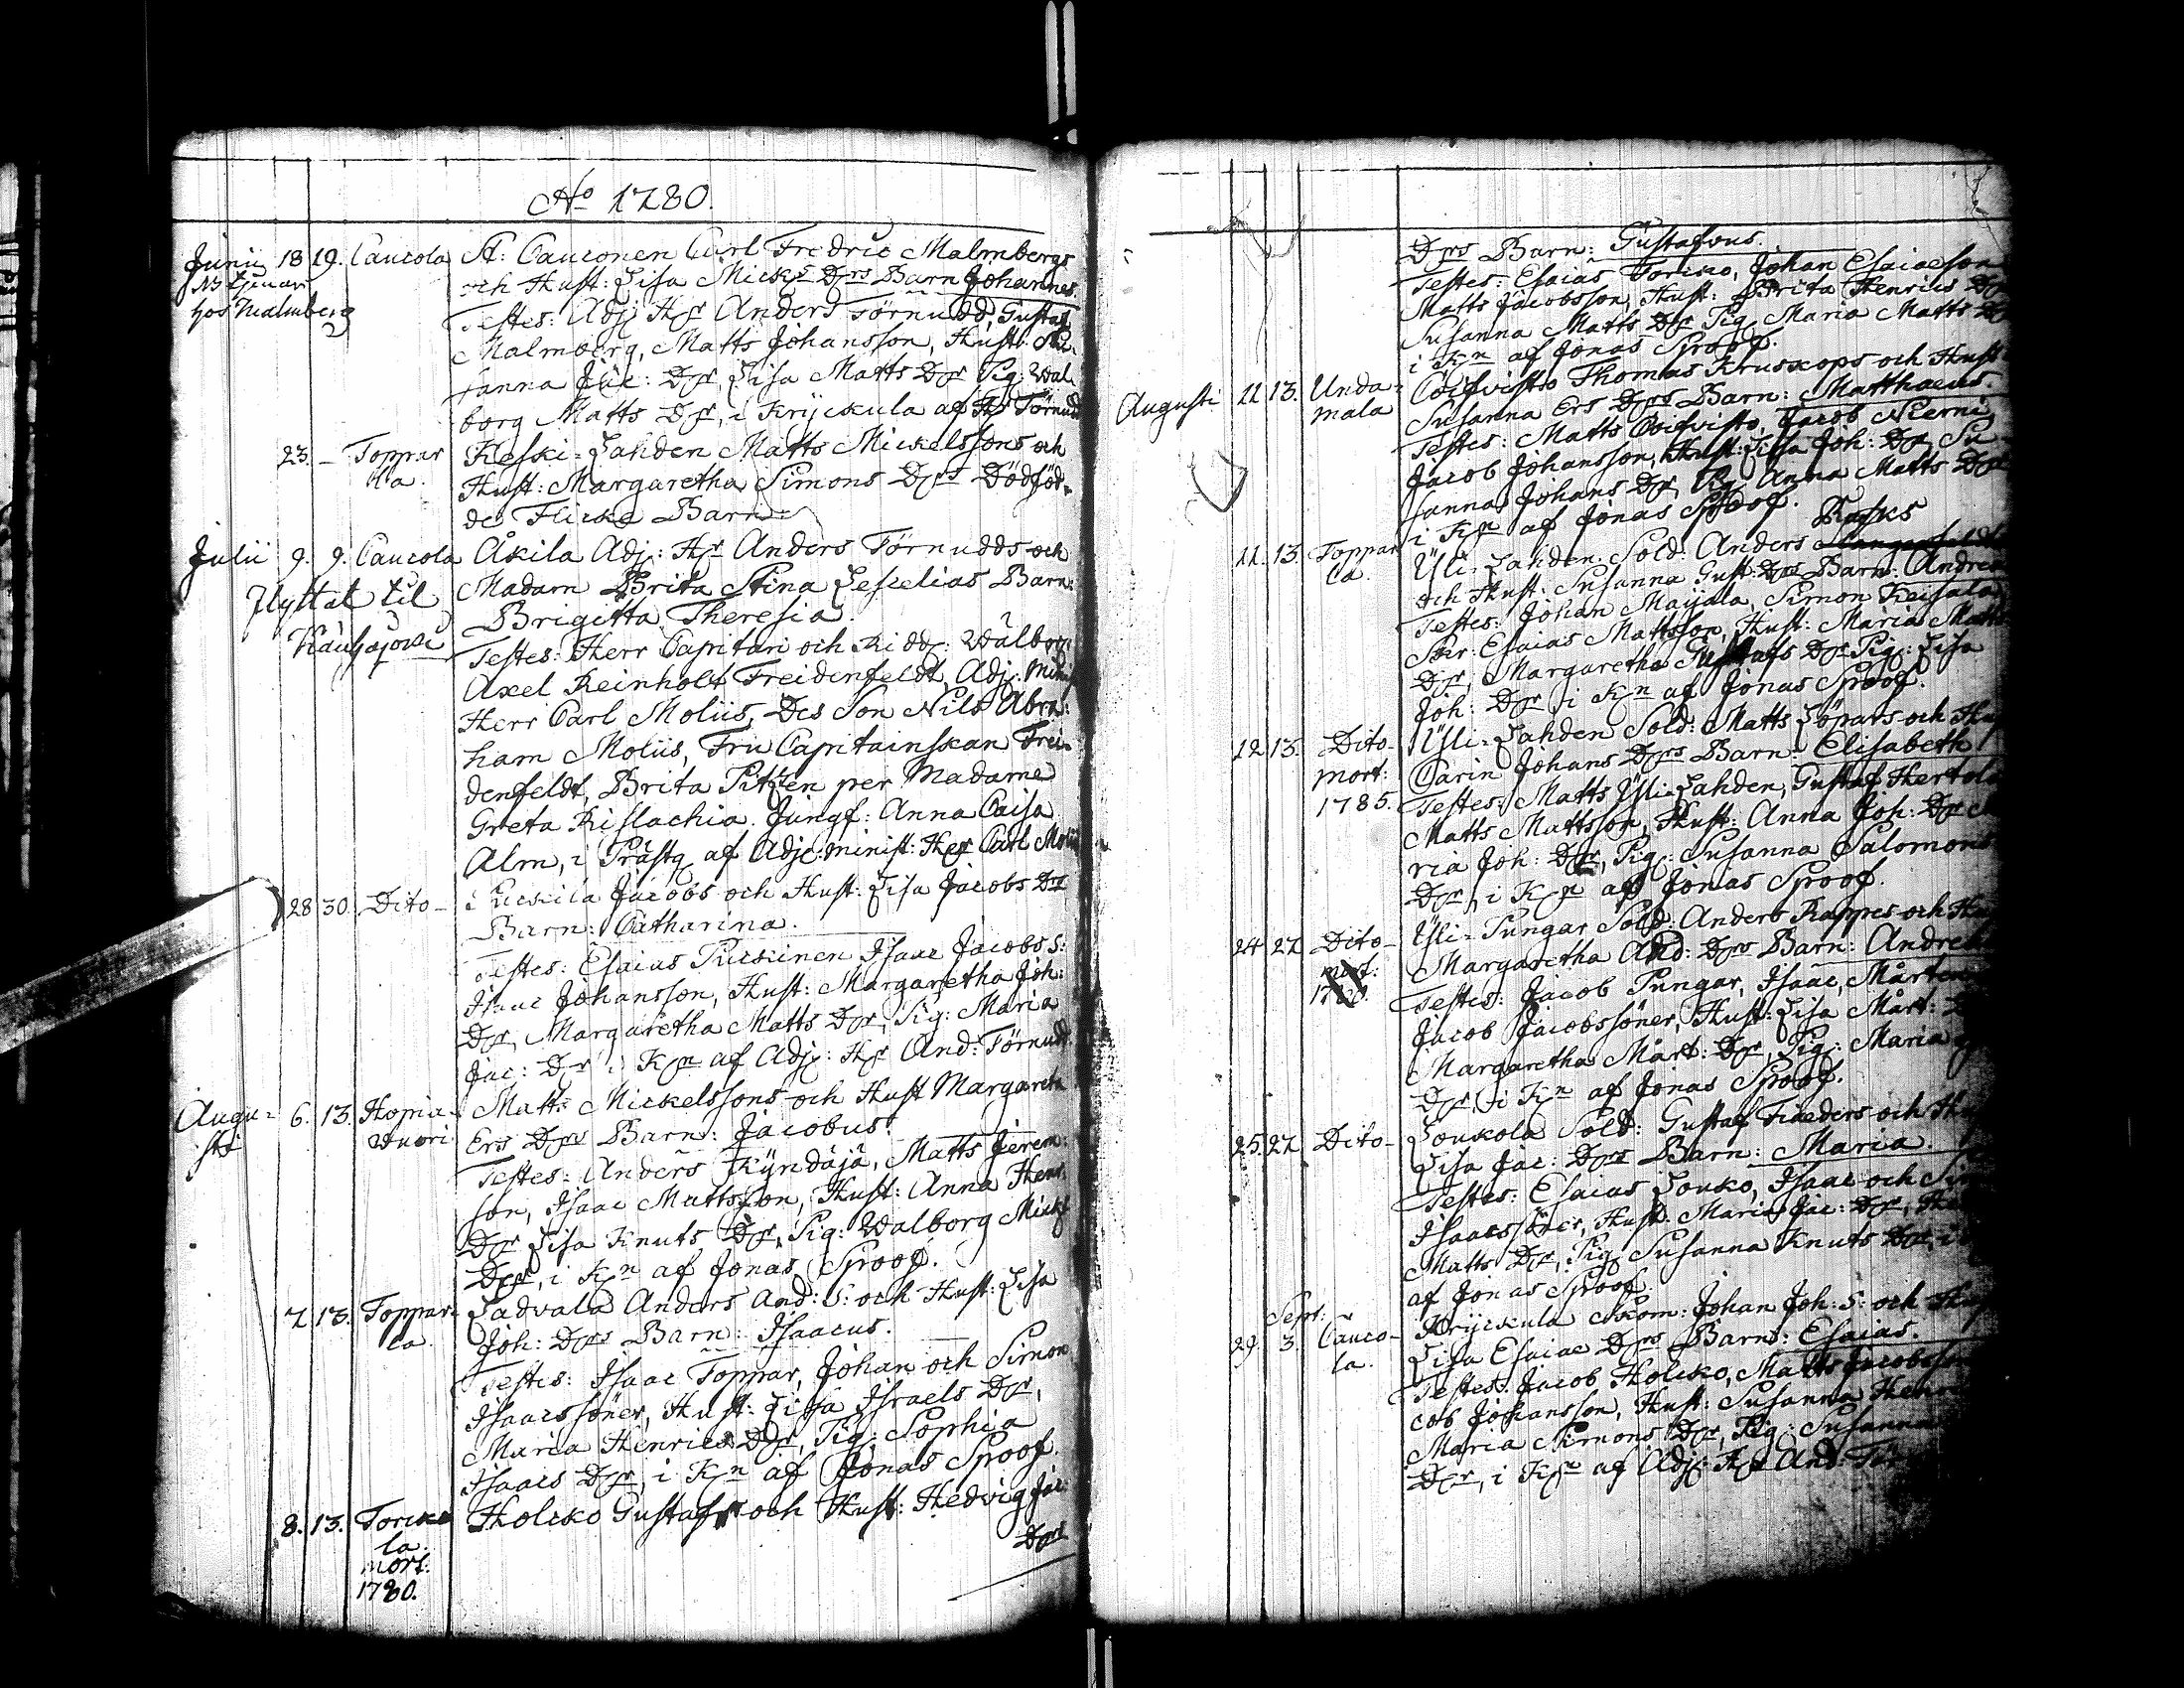 Aº 1780.
Junii 18 19. Caucola A: Cauconen Carl Fredric Malmbergs
NB tjenar och Hust: Lisa Micks Drs Barn Johannes.
hos Malmberg Testes: Adj: Hr Anders Törnudd, Gustaf
Malmberg, Matts Johansson, Hust: Su-
sanna Jac: Dr, Lisa Matts Dr Pig: Wal-
borg Matts Dr, i Kryckula af Hr Törnudd
23. – Toppar Keski-Lahden Matts Mickelssons och
la. Hust: Margaretha Simons Drs Dödföd-
des Flicke Barn
Julii 9. 9. Caucola Åkila Adj: Hr Anders Törnudds och
flyttat til Madam Brita Stina Lescelias Barn:
Brigitta Theresia.
Testes: Herr Capitain och Ridd: Wälborn:
Axel Reinholt Freidenfeldt, Adj: Minist
Herr Carl Moliis, Des Son Nils Abra-
ham Moliis, Fru Capitainskan Frei-
denfeldt, Brita Pitzen per Madame
Greta Rislachia. Jungf: Anna Caisa
Alm, i Prästg af Adj: minist: Hr Carl Moliis
28 30. Dito – Puckila Jacobs och Hust: Lisa Jacobs Drs
Barn: Catharina.
Testes: Esaias Puckinen Isaac Jacobs s:
Isaac Johansson, Hust: Margaretha Joh:
Dr, Margaretha Matts Dr, Pig: Maria
Jac: Dr i Kn af Adj: Hr And: Törnudd
Augu- 6. 13. Hopia- Matts Mickelssons och Hust Margareta
sti wuori Ers Drs Barn: Jacobus.
Testes: Anders Kyndäjä, Matts Jerem:
son, Isaac Mattsson, Hust: Anna Henr:
Dr Lisa Knuts Dr, Pig: Walborg Micks
Dr, i Kn af Jonas Sproof.
7. 13. Toppar- Ladvala Anders And: S: och Hust: Lisa
la. Joh: Drs Barn: Isaacus.
Testes: Isaac Toppar, Johan och Simon
Isaacssöner, Hust: Lisa Israels Dr,
Maria Henrics Dr, Pig: Sophia
Isaacs Dr, i Kn af Jonas Sproof.
8. 13. Torcko Holcko Gustafs och Hust: Hedvig Jac:
la. Drs
mort:
1780.
Drs Barn: Gustafvus.
Testes: Esaias Torcko, Johan Esaiaeson
Matts Jacobsson, Hust: Brita Henrics Dr
Susanna Matts Dr Pig Maria Matts Dr
i Kn af Jonas Sproof.
Augusti 11 13. Unda- Coifvisto Thomas Kruskops och Hust
mala Susanna Ers Drs Barn: Matthaeus.
Testes: Matts Coifvisto, Jacob Nierni
Jacob Johansson, Hust: Lisa Joh: Dr, Su-
sanna Johans Dr, Pig: Anna Matts Dr
i Kn af Jonas Sproof.
Rusks
11. 13. Toppar Yli-Lahden Sold: Anders
la. och Hust: Susanna Gust: Drs Barn: Andreas
Testes: Johan Maijala, Simon Keisala
Skr: Esaias Mattsson, Hust: Maria Matts
Dr, Margaretha Gustafs Dr Pig: Lisa
Joh: Dr, i Kn af Jonas Sproof.
12. 13. Dito – Yli-Lahden Sold: Matts Löpars och Hust
mort: Carin Johans Drs Barn: Elisabeth
1785. Testes: Matts Yli-Lahden, Gustaf Hertola
Matts Mattsson, Hust: Anna Joh: Dr Ma
ria Joh: Dr, Pig: Susanna Salomons
Dr, i Kn af Jonas Sproof.
24 27 Dito – Yli-Pungar Sold: Anders Rappes och Hust
mort: Margaretha And: Drs Barn: Andreas
Testes: Jacob Pungar, Isaac, Mårten
Jacob Jacobssöner, Hust: Lisa Mårt:
Margaretha Mårt: Dr, Pig: Maria
Dr, i Kn af Jonas Sproof.
25. 27 Dito – Loukola Sold: Gustaf Fiaeders och Hust
Lisa Jac: Drs Barn: Maria.
Testes: Esaias Louko, Isaac och Sim
Isaacssöner, Hust. Maria Jac: Dr,
Matts Dr, Pig Susanna Knuts Dr, i
af Jonas Sproof.
Sept:
29. 3. Cauco- Kryckula Skom: Johan Joh: S: och Hust
la. Lisa Esaiae Drs Barn: Esaias.
Testes: Jacob Holcko, Matts Jacobsson
cob Johansson, Hust: Susanna Henr
Maria Simons Dr, Pig: Susanna
Dr, i Kn af Adj: Hr And: Törn